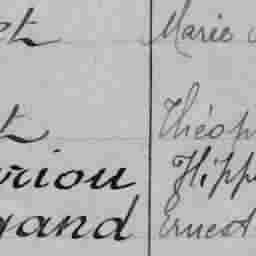 et Marie
t Théop
riou Hipp
gand Ernest